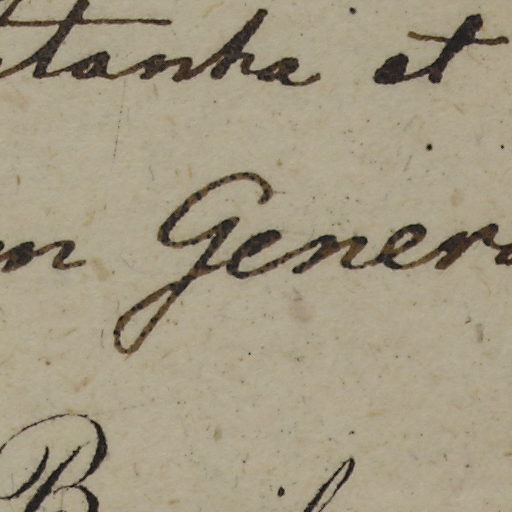 tanha et
n Gener
B